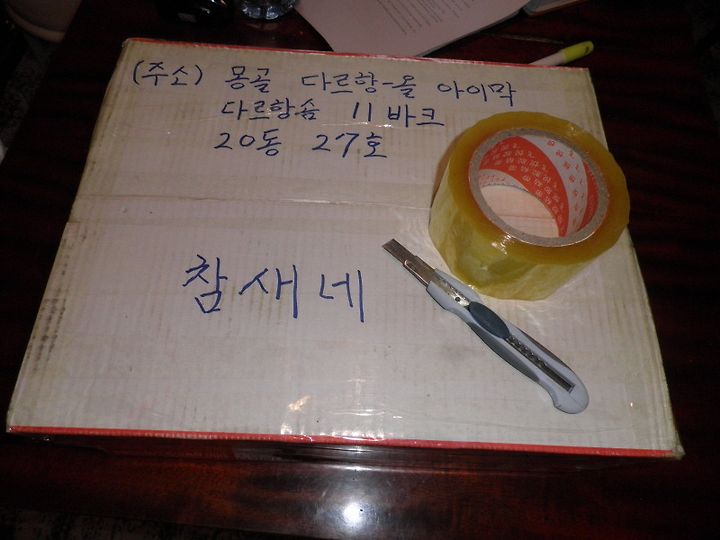 (주소) 몽골 다르항-올 아이막
다르항솜 11 바크
20동 27호
참새네